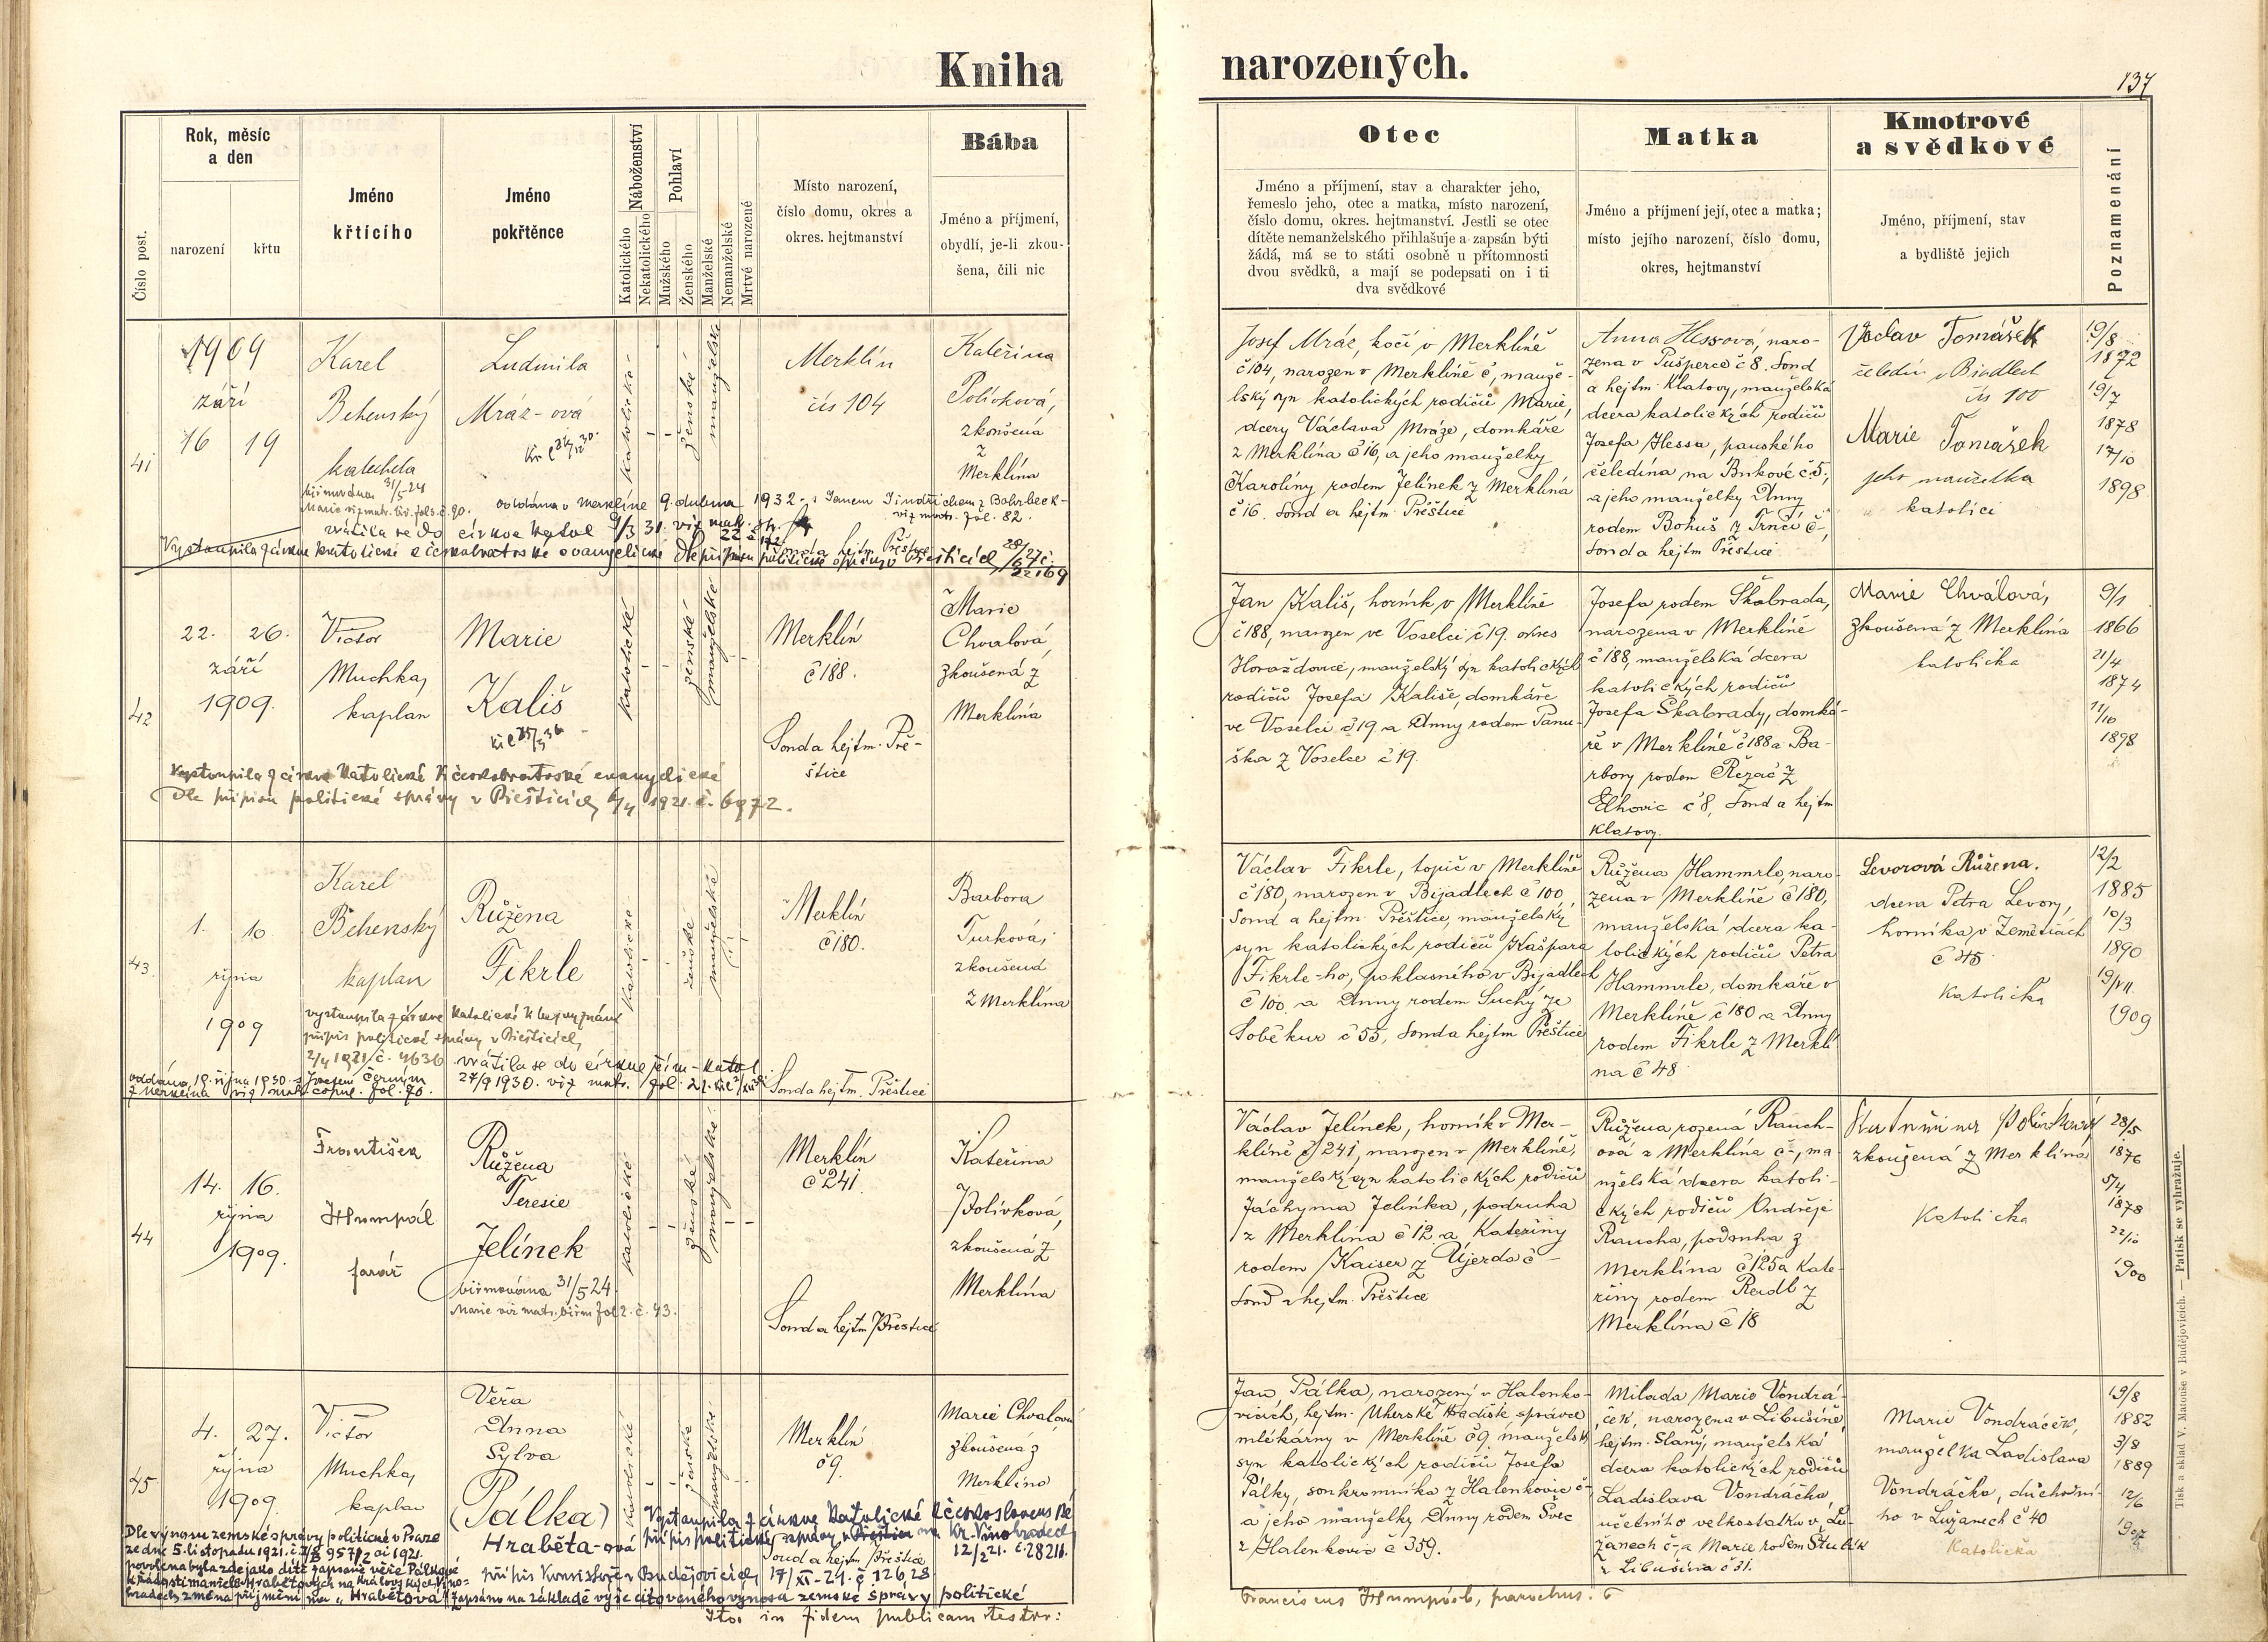 Kniha narozených.
137
Číslo post.
Rok, měsíc
a den
narození
křtu
Jméno
křtícího
Jméno
pokřtěnce
Náboženství
Katolického
Nekatolického
Pohlaví
Mužského
Ženského
Manželské
Nemanželské
Mrtvé narozené
Místo narození,
číslo domu, okres a
okres. hejtmanství
Bába
Jméno a příjmení,
obydlí, je-li zkou-
šena, čili nic
Otec
Jméno a příjmení, stav a charakter jeho,
řemeslo jeho, otec a matka, místo narození,
číslo domu, okres. hejtmanství. Jestli se otec
dítěte nemanželského přihlašuje a zapsán býti
žádá, má se to státi osobně u přítomnosti
dvou svědků, a mají se podepsati on i ti
dva svědkové
Matka
Jméno a příjmení její, otec a matka;
místo jejího narození, číslo domu,
okres, hejtmanství
Kmotrové
a svědkové
Jméno, příjmení, stav
a bydliště jejich
Poznamenání
41
1909
září
16 19
Karel
Behenský
katecheta
Ludmila
Mráz-ová
katolické
ženské
manželské
Merklín
čís 104
Kateřina
Polívková,
zkoušená
z
Merklína
biřmována 31/5 24
oddána v Merklíně 9. dubna 1932
viz matr. fol. 82.
vrátila se do církve katol
Vystoupila z církve katolické k českobratrské evangelické
Josef Mráz, kočí v Merklíně
č 104, narozen v Merklíně č, manže-
lský syn katolických rodičů Marie,
dcery Václava Mráze, domkáře
z Merklína č 16, a jeho manželky
Karolíny rodem Jelínek z Merklína
č 16. Soud a hejtm. Přeštice
Anna Hessová, naro-
zena v Pušperce č 8. Soud
a hejtm. Klatovy, manželská
dcera katolických rodičů
Josefa Hessa, panského
čeledína na Brnkově č 5,
a jeho manželky Anny
rodem Bohuš z Trnčí č-,
Soud a hejtm Přeštice
Václav Tomášek
čís 100
Marie Tomášek
jeho manželka
katolíci
19/8
1872
19/7
1878
17/10
1898
42
22. 26.
září
1909.
Victor
Muchka,
kaplan
Marie
Kališ
katolické
ženské
manželské
Merklín
č 188.
Soud a hejtm. Pře-
štice
Marie
Chvalová,
zkoušená z
Merklína
Vystoupila z církve katolické k českobratrské evangelické
Dle přípisu politické správy v Přešticích 6/4 1921. č. 6972.
Jan Kališ, horník v Merklíně
č 188, narozen ve Voselci č 19. okres
Horažďovice, manželský syn katolických
rodičů Josefa Kališe, domkáře
ve Voselci č 19 a Anny rodem Panu-
ška z Voselce č 19.
Josefa rodem Škabrada,
narozena v Merklíně
č 188, manželská dcera
katolických rodičů
Josefa Škabrady, domká-
ře v Merklíně č 188 a Ba-
rbory rodem Řezáč z
Elhovic č 8, Soud a hejtm
Klatovy.
Marie Chválová,
zkoušená z Merklína
katolička
9/1
1866
21/4
1874
11/10
1898
43
1. 10
října
1909
Karel
Behenský
kaplan
Růžena
Fikrle
katolické
ženské
manželské
Merklín
č 180.
Soud a hejtm. Přeštice
Barbora
Turková,
zkoušená
z Merklína
vystoupila z církve katolické k bezvyznání
přípis politické správy v Přešticích
2/4 1921 č. 4636 vrátila se do církve řím-katol.
27/9 1930. viz matr. fol.
oddána 18. října 1930 s Josefem Černým
z Merklína viz matr. copul. fol. 70.
Václav Fikrle, topič v Merklíně
č 180, narozen v Bijadlech č 100,
Soud a hejtm. Přeštice, manželský
syn katolických rodičů Kašpara
Fikrle-ho, poklasného v Bijadlech
č 100 a Anny rodem Suchý ze
Soběkur č 55, Soud a hejtm Přeštice
Růžena Hammrle, naro-
zena v Merklíně č 180,
manželská dcera ka-
tolických rodičů Petra
Hammrle, domkáře v
Merklíně č 180 a Anny
rodem Fikrle z Merklí-
na č 48
Levorová Růžena.
dcera Petra Levory,
horníka v Zeměticích
č 45
katolička
12/2
1885
10/3
1890
19/VII.
1909
44
14. 16.
října
1909.
František
Humpál
farář
Růžena
Teresie
Jelínek
biřmována 31/5 24.
Marie viz matr. biřm fol 2. č. 93.
katolické
ženské
manželské
Merklín
č 241
Soud a hejtm Přeštice
Kateřina
Polívková,
zkoušená z
Merklína
Václav Jelínek, horník v Mer-
klíně č 241, narozen v Merklíně,
manželský syn katolických rodičů
Jáchyma Jelínka, podruha
z Merklína č 12 a Kateřiny
rodem Kaiser z Újezda č-
Soud a hejtm. Přeštice
Růžena rozená Rauch-
ová z Merklína č-, ma-
nželská dcera katoli-
ckých rodičů Ondřeje
Raucha, podruha z
Merklína č 125 a Kate-
řiny rodem Reidl z
Merklína č 18
Kateřina Polívková
zkoušená z Merklína
Katolička
28/5
1876
5/4
1878
22/10
1900
45
4. 27.
října
1909.
Victor
Muchka,
kaplan
Věra
Anna
Sylva
(Pálka)
Hraběta-ová
katolické
ženské
manželské
Merklín
č 9.
Soud a hejtm Přeštice
Marie Chvalová
zkoušená z
Merklína
Vystoupila z církve katolické k československé
přípis politický správy na Kr. Vinohradech
12/2 21. č. 28211.
Dle výnosu zemské správy politické v Praze
ze dne 5. listopadu 1921.
povolena byla zde jako dítě zapsané Věře Pálkové
k žádosti manželů Hrabětových na Královských Vino-
hradech změna příjmení na „Hrabětová" Zapsáno na základě výše citovaného výnosu zemské správy politické
přípis Konsistoře v Budějovicích 17/XI-21. č 12628
Ita in fidem publicam testor:
Jan Pálka, narozený v Halenko-
vicích, hejtm. Uherské Hradiště správce
mlékárny v Merklíně č 9 manželský
syn katolických rodičů Josefa
Pálky, soukromníka z Halenkovic č-
a jeho manželky Anny rodem Švec
z Halenkovic č 359.
Milada Marie Vondrá-
ček, narozena v Libušíně,
hejtm. Slaný, manželská
dcera katolických rodičů
Ladislava Vondráčka,
účetního velkostatku v Lu-
žanech č-, a Marie rodem Štulík
z Libušína č 31.
Marie Vondráček,
manželka Ladislava
Vondráčka, důchodní-
ho v Lužanech č 40
Katolička
19/8
1882
3/8
1889
12/6
1907
Franciscus Humpál, parochus.
Tisk a sklad V. Matouše v Budějovicích. — Patisk se vyhražuje.